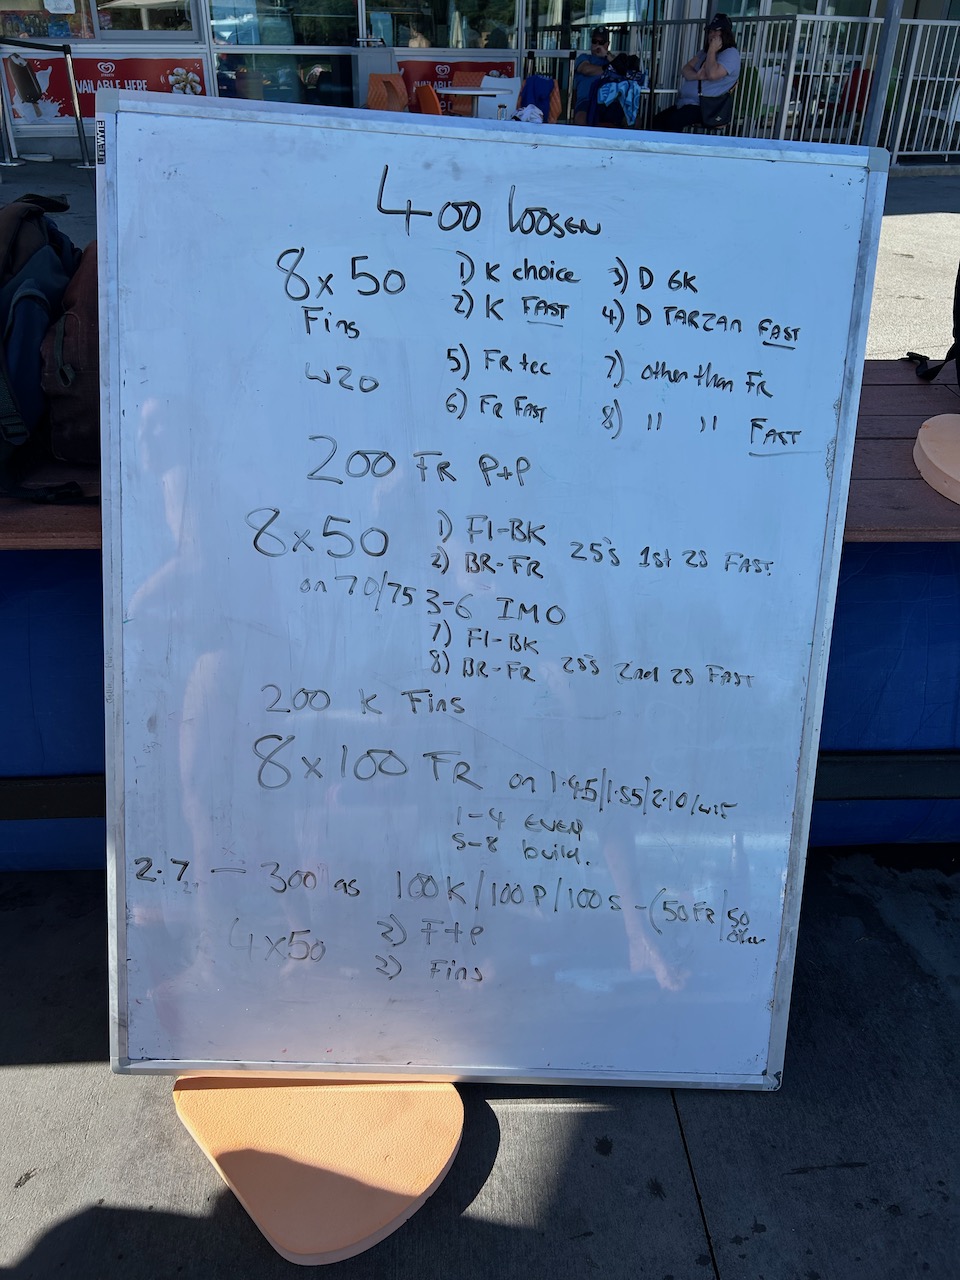 AVAILABLE HERE
LITEWYTE
400 LOOSEN
8x50 1) K choice 3) D 6K
Fins 2) K FAST 4) D TARZAN FAST
W20 5) FR tec 7) other than FR
6) FR FAST 8) " " FAST
200 FR P+P
8x50 1) FI-BK
2) BR-FR 25's 1st 25 FAST
on 70/75 3-6 IMO
7) FI-BK
8) BR-FR 25's 2nd 25 FAST
200 K Fins
8x100 FR on 1.45/1.55/2.10/w15
1-4 EVEN
5-8 build.
2.7 = 300 as 100K/100P/100S-(50FR/50 other
4x50 2) F+P
2) Fins